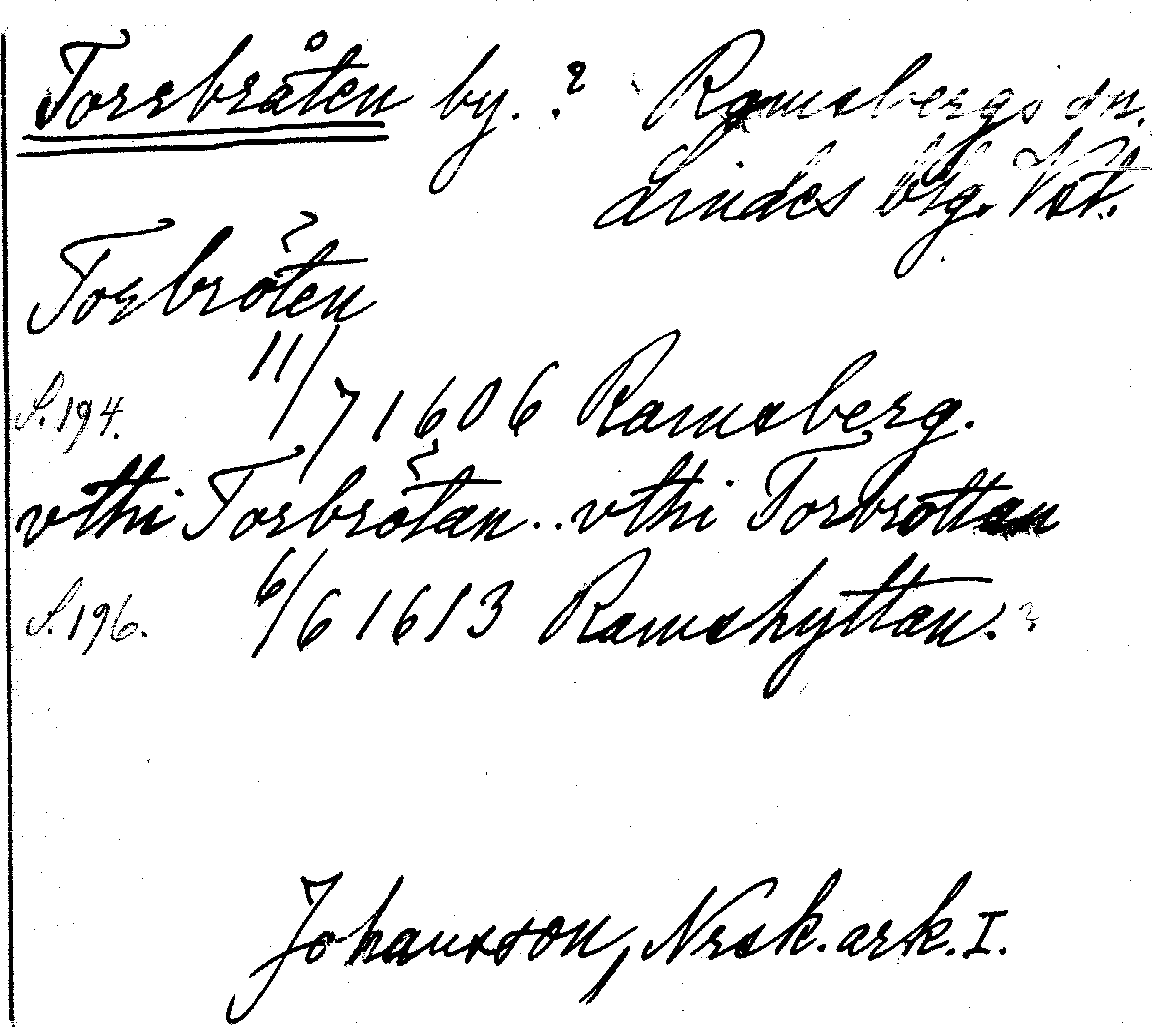 Torsbråten by. ? Ramsbergs sn.
Lindes blg. Vst.
Torbröten
S. 194. 11/7 1606 Ramsberg.
vthi Torbrötan.. vthi Torbrottan
S. 196. 6/6 1613 Ramshyttan.
Johansson, Nrsk. ark. I.